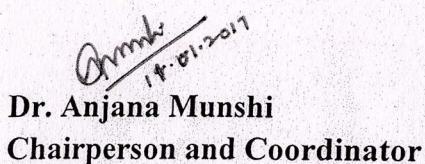 14.01.2017
Dr. Anjana Munshi
Chairperson and Coordinator